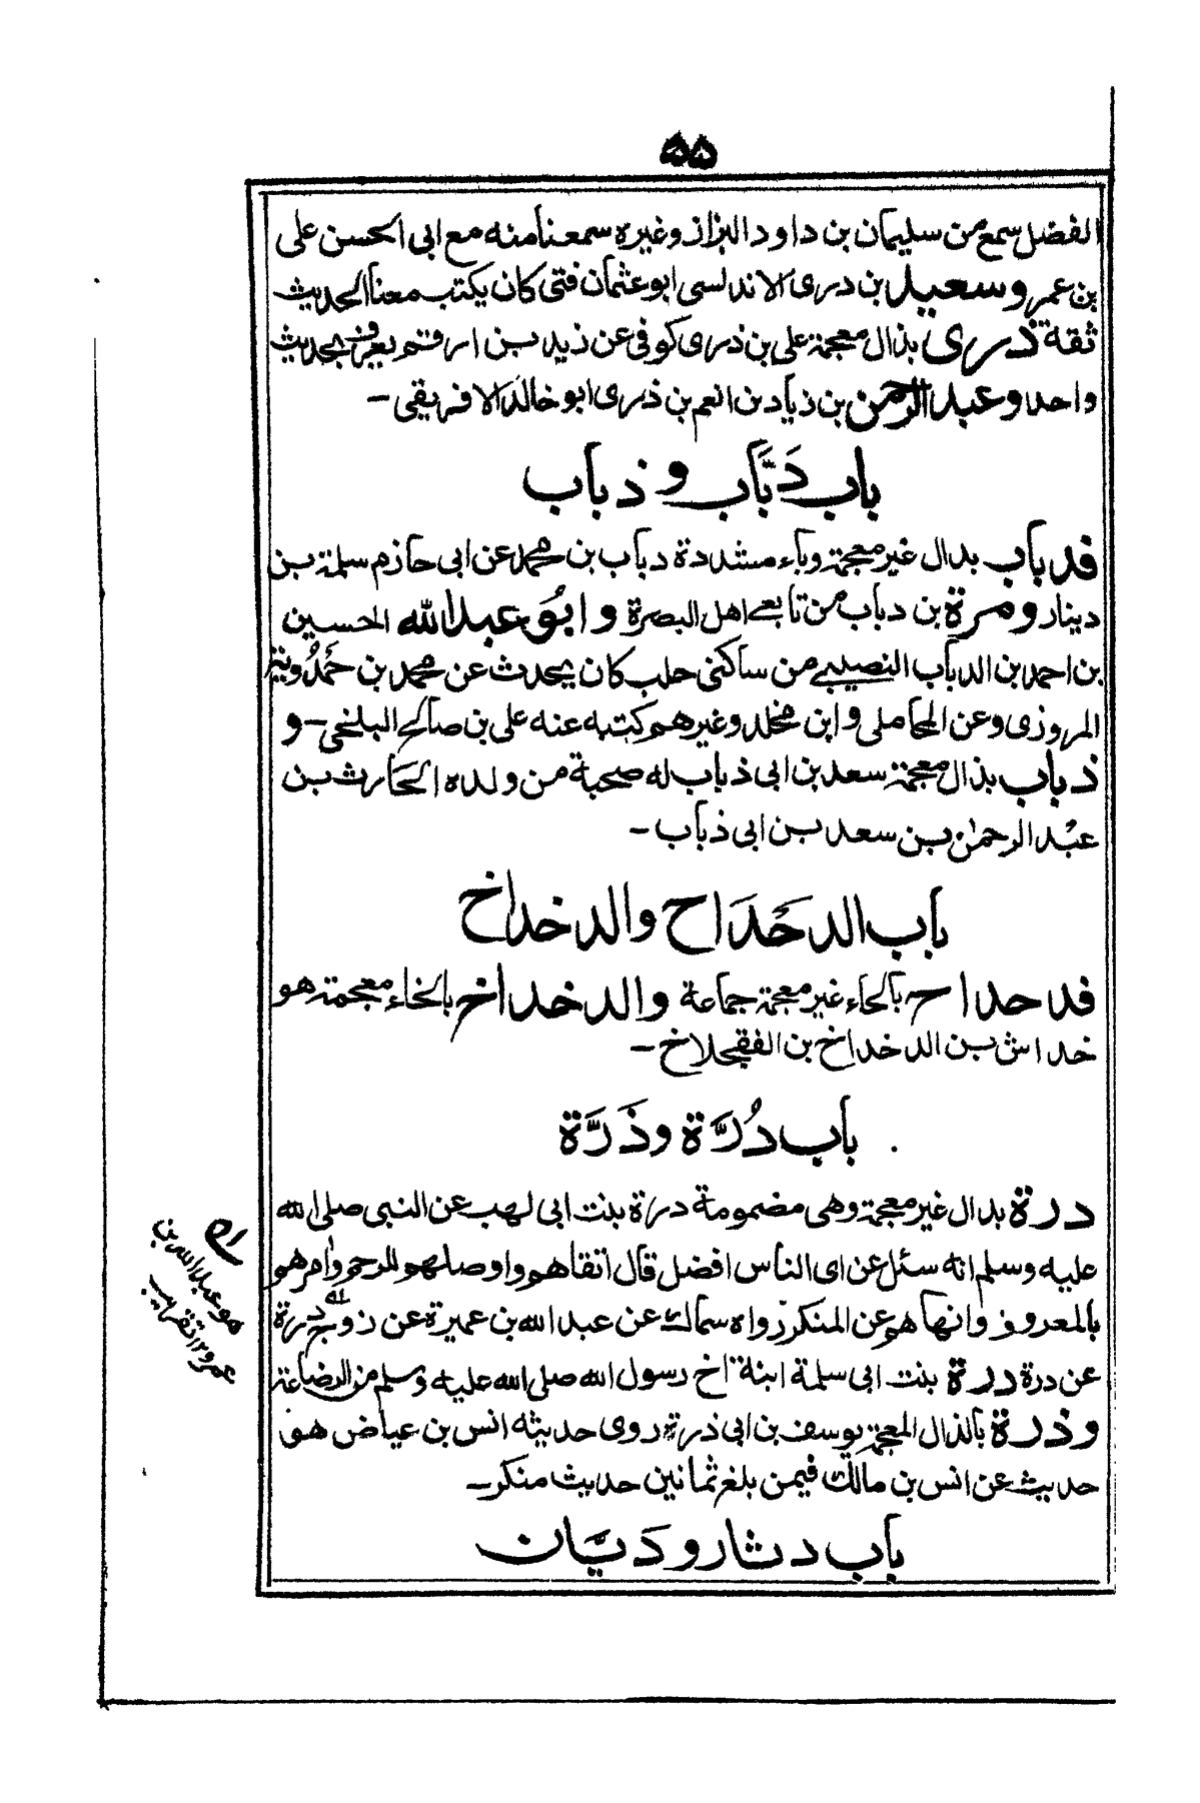 ۵۵
الفضل سمع من سليمان بن داود البزاز وغيره سمعنا منه مع ابى الحسن على
بن عمرو سعيد بن درى الاندلسى ابو عثمان فتى كان يكتب معنا الحديث
ثقة ذرى بذال معجمة على بن ذرى كوفى عن زيد بن ارقم يعرف بحديث
واحد وعبد الرحمن بن زياد بن انعم بن ذرى ابو خالد الافريقى ـ
باب دَبَّاب وذباب
فدباب بدال غير معجمة وباء مشددة دباب بن محمد عن ابى حازم سلمة بن
دينار ومرة بن دباب من تابعى اهل البصرة وابو عبد الله الحسين
بن احمد بن الدباب النصيبى من ساكنى حلب كان يحدث عن محمد بن حَمدُويَه
المروزى وعن المحاملى وابن مخلد وغيرهم كتب عنه على بن صالح البلخى ـ و
ذباب بذال معجمة سعد بن ابى ذباب له صحبة من ولده الحارث بن
عبد الرحمن بن سعد بن ابى ذباب ـ
باب الدحَدَاح والدخداخ
فدحداح بالحاء غير معجمة جماعة والدخداخ بالخاء معجمة هو
خداش بن الدخداخ بن الفقحلاخ ـ
باب دُرَّة وذَرَّة
درة بدال غير معجمة وهى مضمومة درة بنت ابى لهب عن النبى صلى الله
عليه وسلم انه سئل عن اى الناس افضل قال اتقاهم واوصلهم للرحم وامرهم
بالمعروف وانهاهم عن المنكر رواه سماك عن عبد الله بن عميرة عن زوج درة
عن درة درة بنت ابى سلمة ابنة اخ رسول الله صلى الله عليه وسلم من الرضاعة
وذرة بالذال المعجمة يوسف بن ابى ذرة روى حديثه انس بن عياض هو
حديث عن انس بن مالك فيمن بلغ ثمانين حديث منكر ـ
باب دثار ودَيَّان
هو عبد الله بن
عمرو ١٢ تقريب